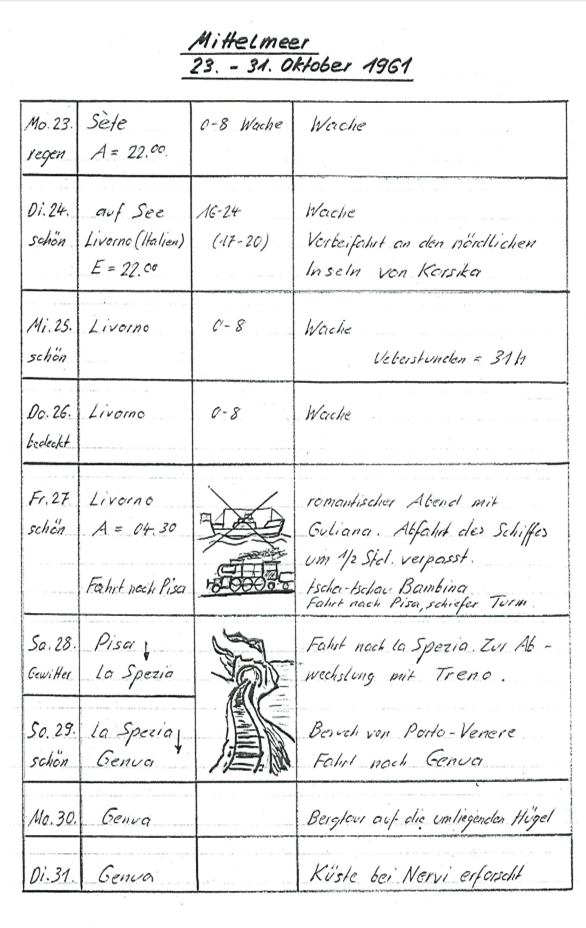 Mittelmeer
23. - 31. Oktober 1961
Mo. 23. Sète 0-8 Wache Wache
regen A = 22.00
Di. 24. auf See 16-24 Wache
schön Livorno (Italien) (17-20) Vorbeifahrt an den nördlichen
E = 22.00 Inseln von Korsika
Mi. 25. Livorno 0-8 Wache
schön Ueberstunden = 31h
Do. 26. Livorno 0-8 Wache
bedeckt
Fr. 27 Livorno romantischer Abend mit
schön A = 04.30 Guliana. Abfahrt des Schiffes
um 1/2 Std. verpasst.
Fahrt nach Pisa tschau-tschau Bambina
Fahrt nach Pisa, schiefer Turm.
Sa. 28. Pisa Fahrt nach la Spezia. Zur Ab-
Gewitter La Spezia wechslung mit Treno.
So. 29. La Spezia Besuch von Porto-Venere
schön Genua Fahrt nach Genua
Mo. 30. Genua Bergtour auf die umliegenden Hügel
Di. 31. Genua Küste bei Nervi erforscht